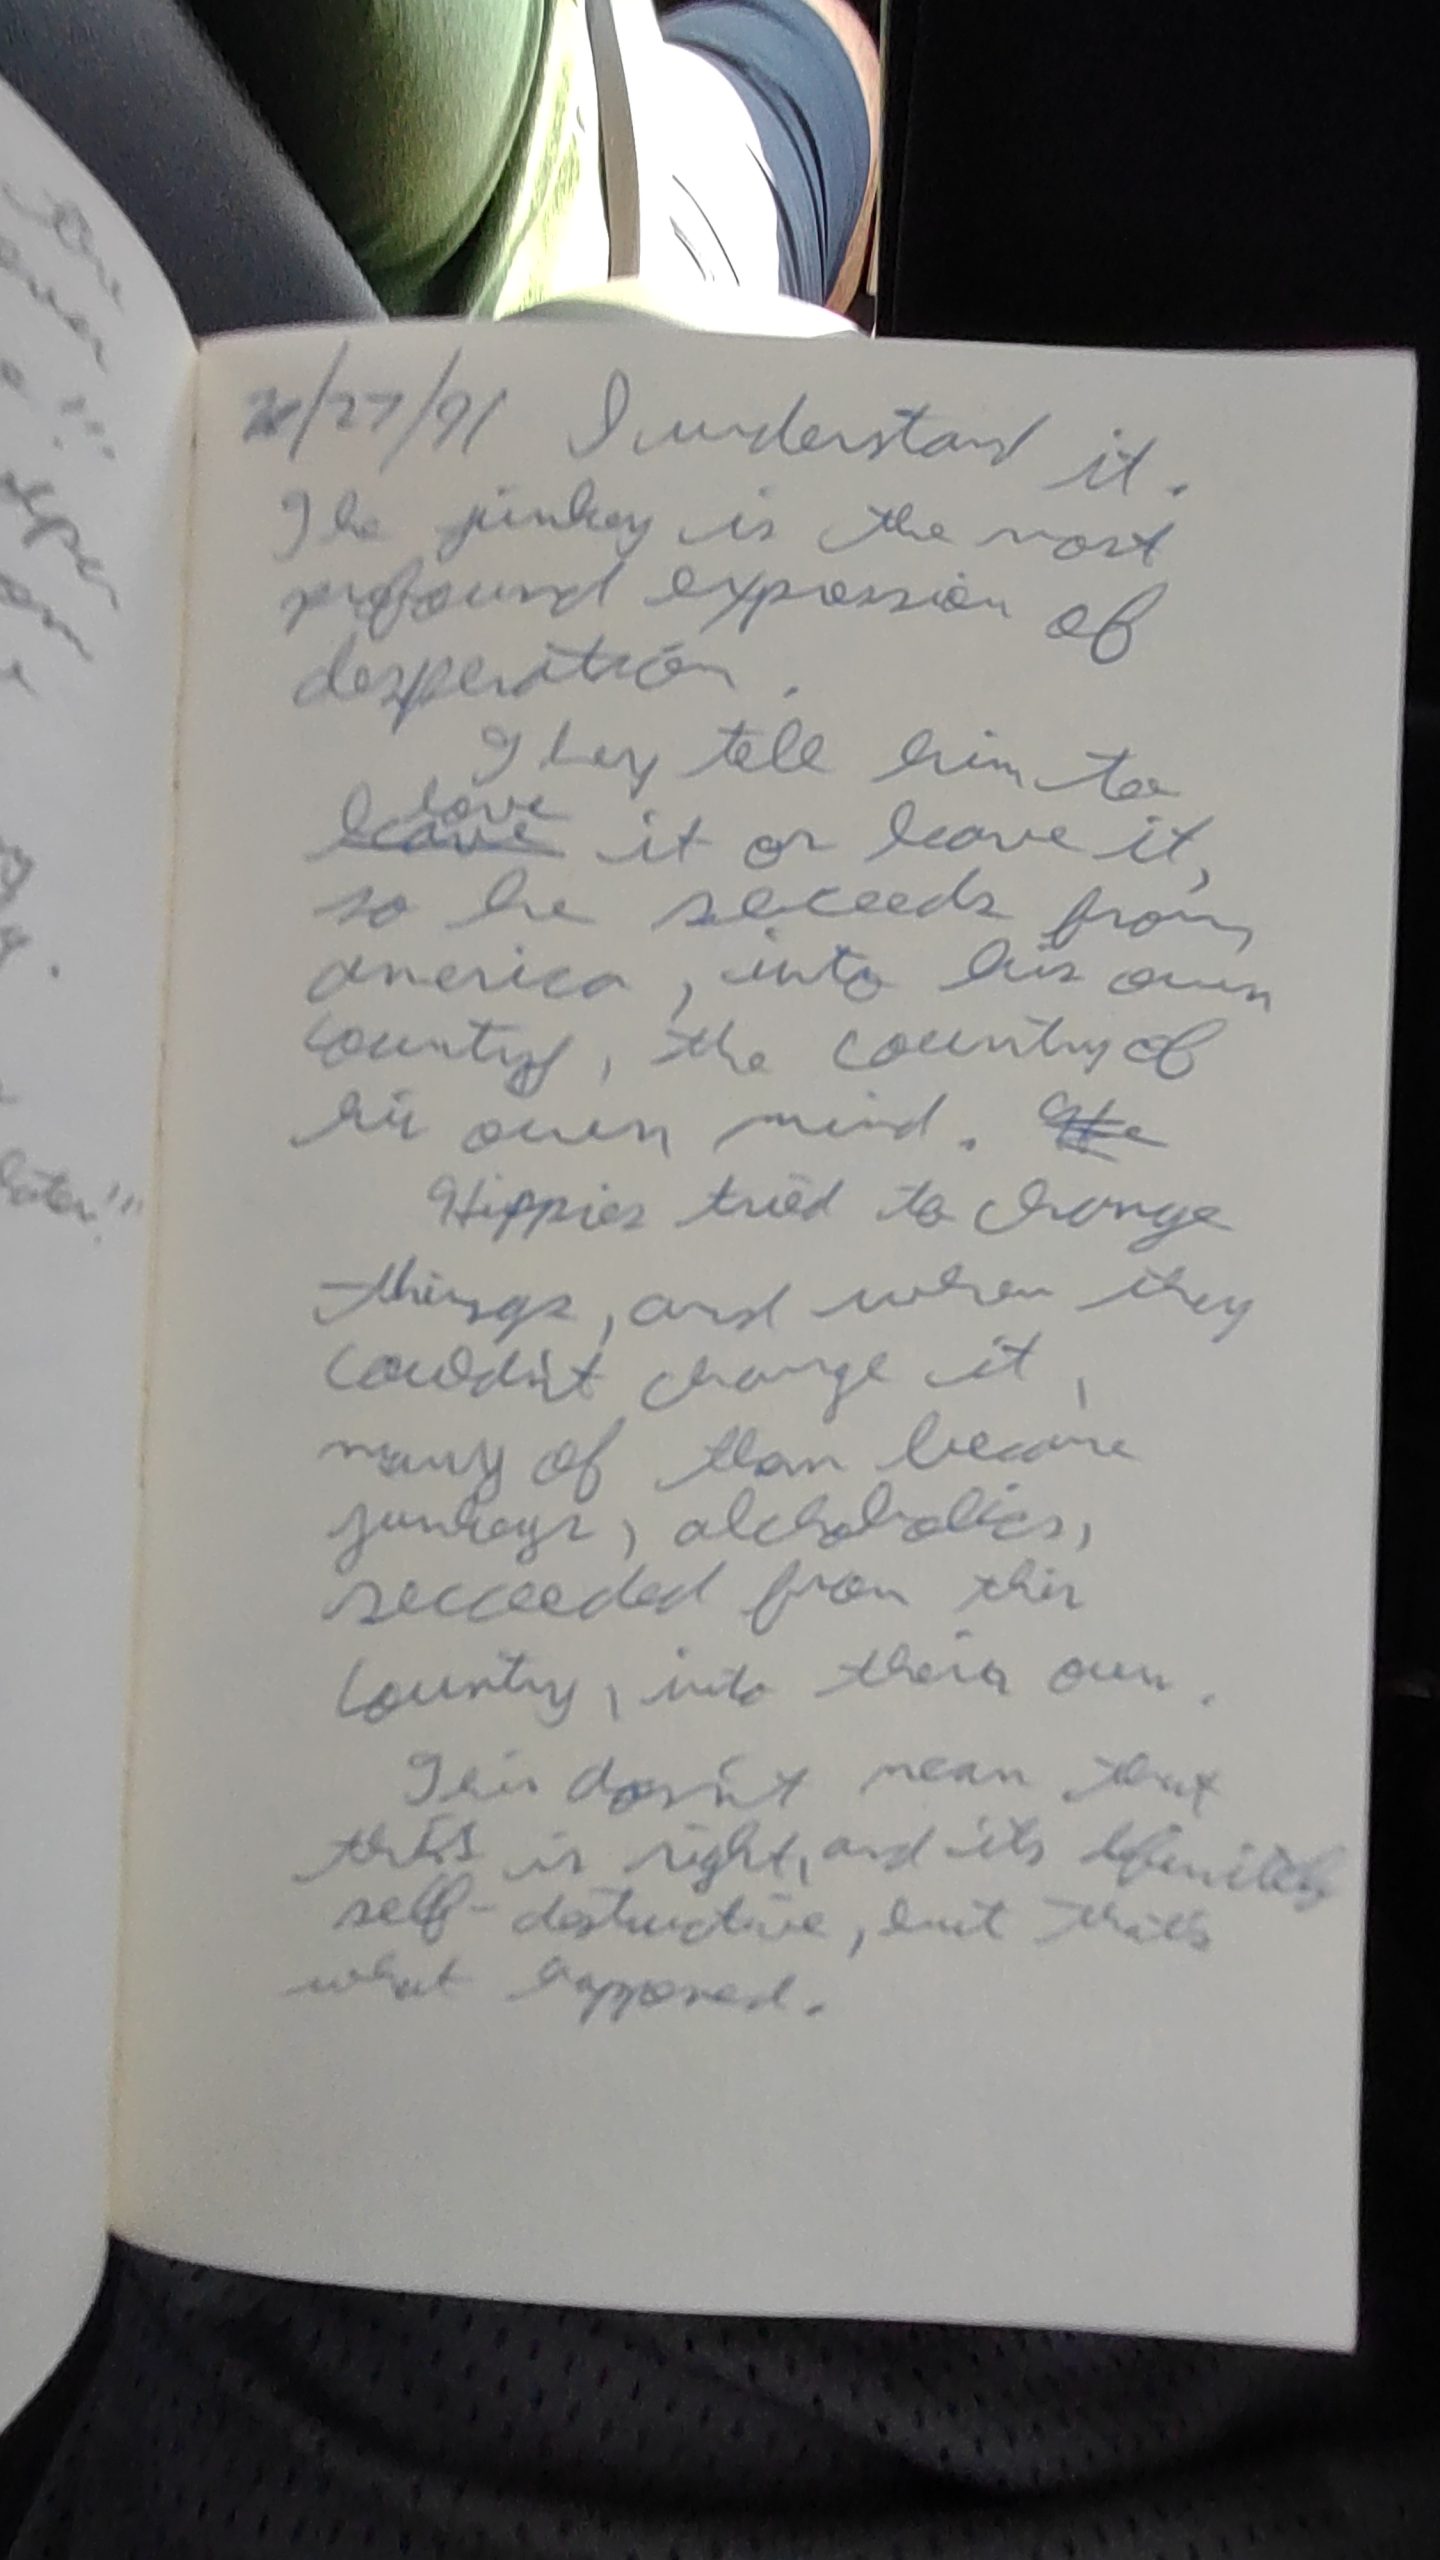 /27/91 I understand it.
The junkey is the most
profound expression of
desperation.
They tell him to
love
leave it or leave it,
so he seceeds from
america, into his own
country, the country of
his own mind. He
Hippies tried to change
things, and when they
couldn't change it,
many of them became
junkeys, alchoholics,
secceeded from this
country, into their own.
This doesn't mean that
this is right, and its definitely
self-destructive, but that's
what happened.
later!!!